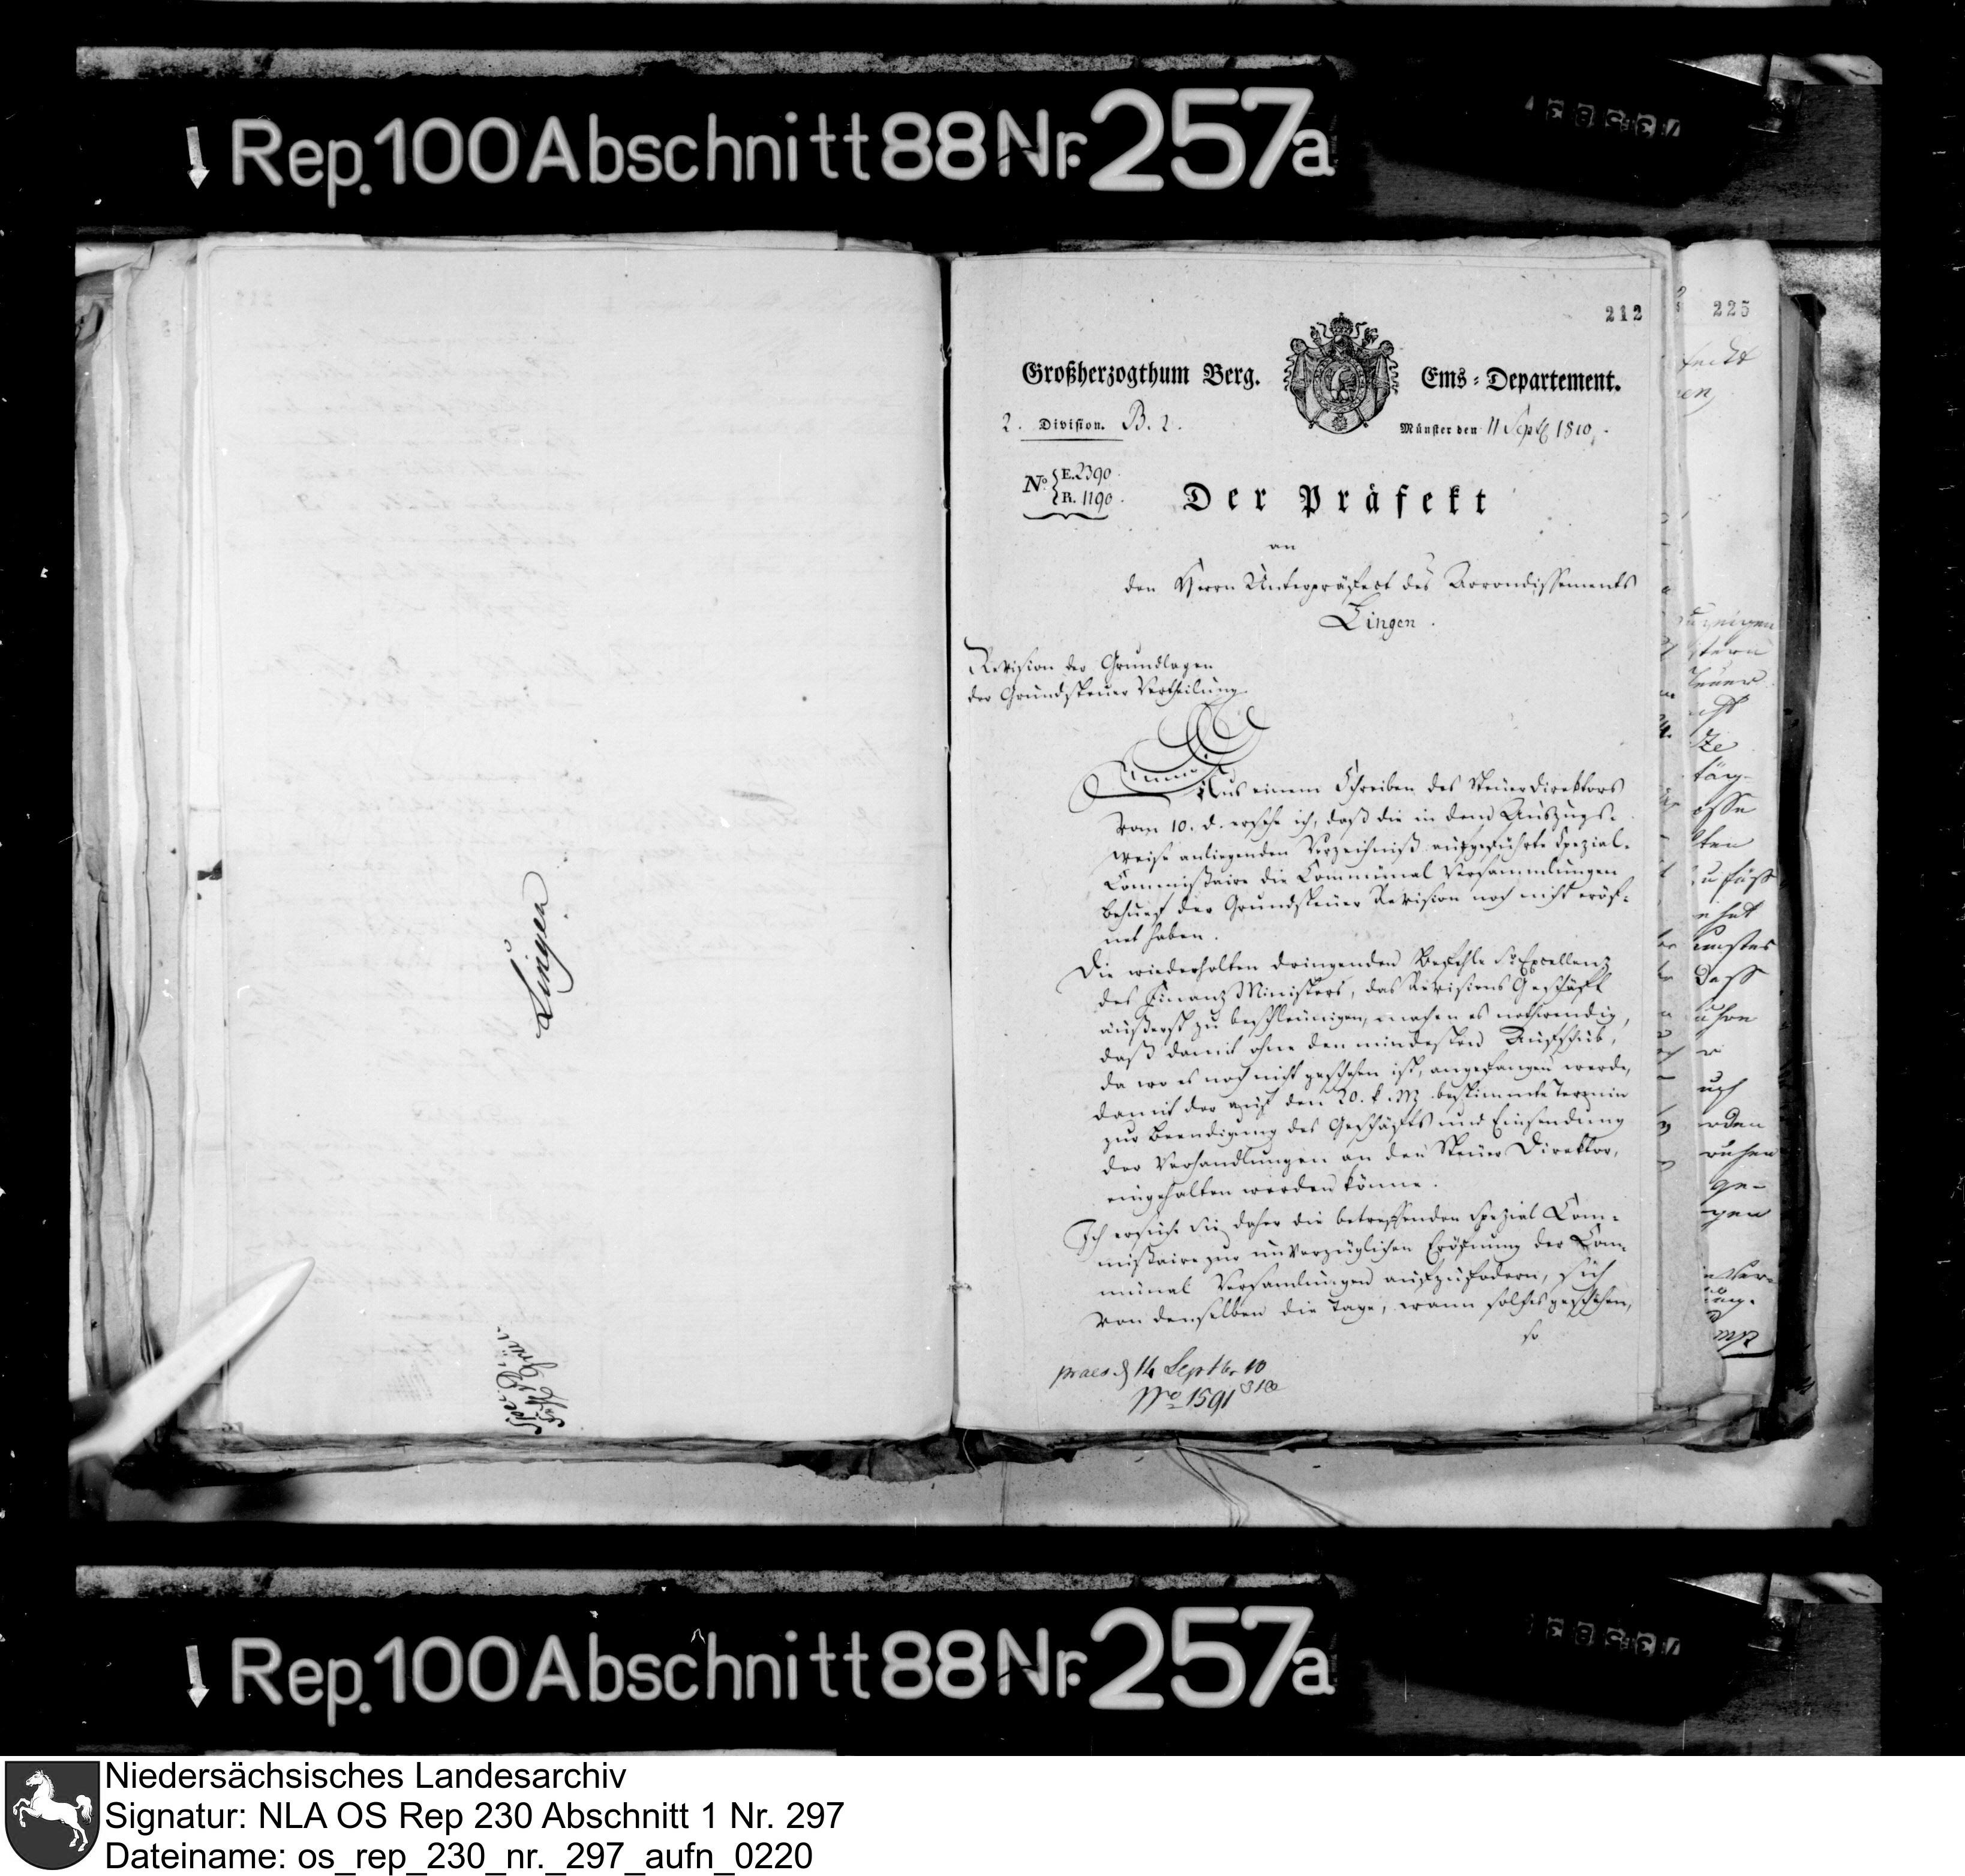 Rep. 100 Abschnitt 88 Nr. 257a
Lingen
212
225
Großherzogthum Berg. Ems-Departement.
2. Division. B. 2.
Münster den 11 Septb 1810.
No. E. 2390.
R. 1190.
Der Präfekt
an
den Herrn Unterpräfect des Arrondissements
Lingen.
Revision der Grundlagen
der Grundsteuer Vertheilung.
Aus einem Schreiben des Steuerdirektors
vom 10. d. ersehe ich, daß die in dem Auszugs-
weise anliegenden Verzeichniß aufgeführte Spezial-
Commissaire die Communal Versammlungen
behuef der Grundsteuer Revision noch nicht eröf-
net haben.
Die wiederholten dringenden Befehle Sr Excellenz
des Finanz Ministers, das Revisions Geschäft
äußerst zu beschleunigen, machen es nothwendig,
daß damit ohne den mindesten Aufschub,
da wo es noch nicht geschehen ist, angefangen werde,
damit der auf den 20. k. M. bestimmte Termin
zur Beendigung des Geschäfts und Einsendung
der Verhandlungen an den Steuer Direktor,
eingehalten werden könne.
Ich ersuche Sie daher die betreffenden Spezial Com-
missaire zur unverzüglichen Eröfnung der Com-
munal Versamlungen aufzufodern, sich
von denselben die Tage, wann solches geschehen,
so
praes d 14 Septbr 10
No 1591
Rep. 100 Abschnitt 88 Nr. 257a
Niedersächsisches Landesarchiv
Signatur: NLA OS Rep 230 Abschnitt 1 Nr. 297
Dateiname: os_rep_230_nr._297_aufn_0220